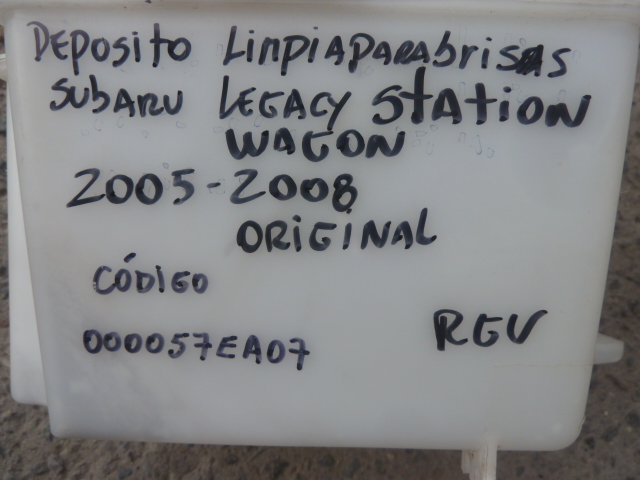 DEPOSITO LIMPIAPARABRISAS
SUBARU LEGACY STATION
WAGON
2005-2008
ORIGINAL
CÓDIGO
000057EA07
REV